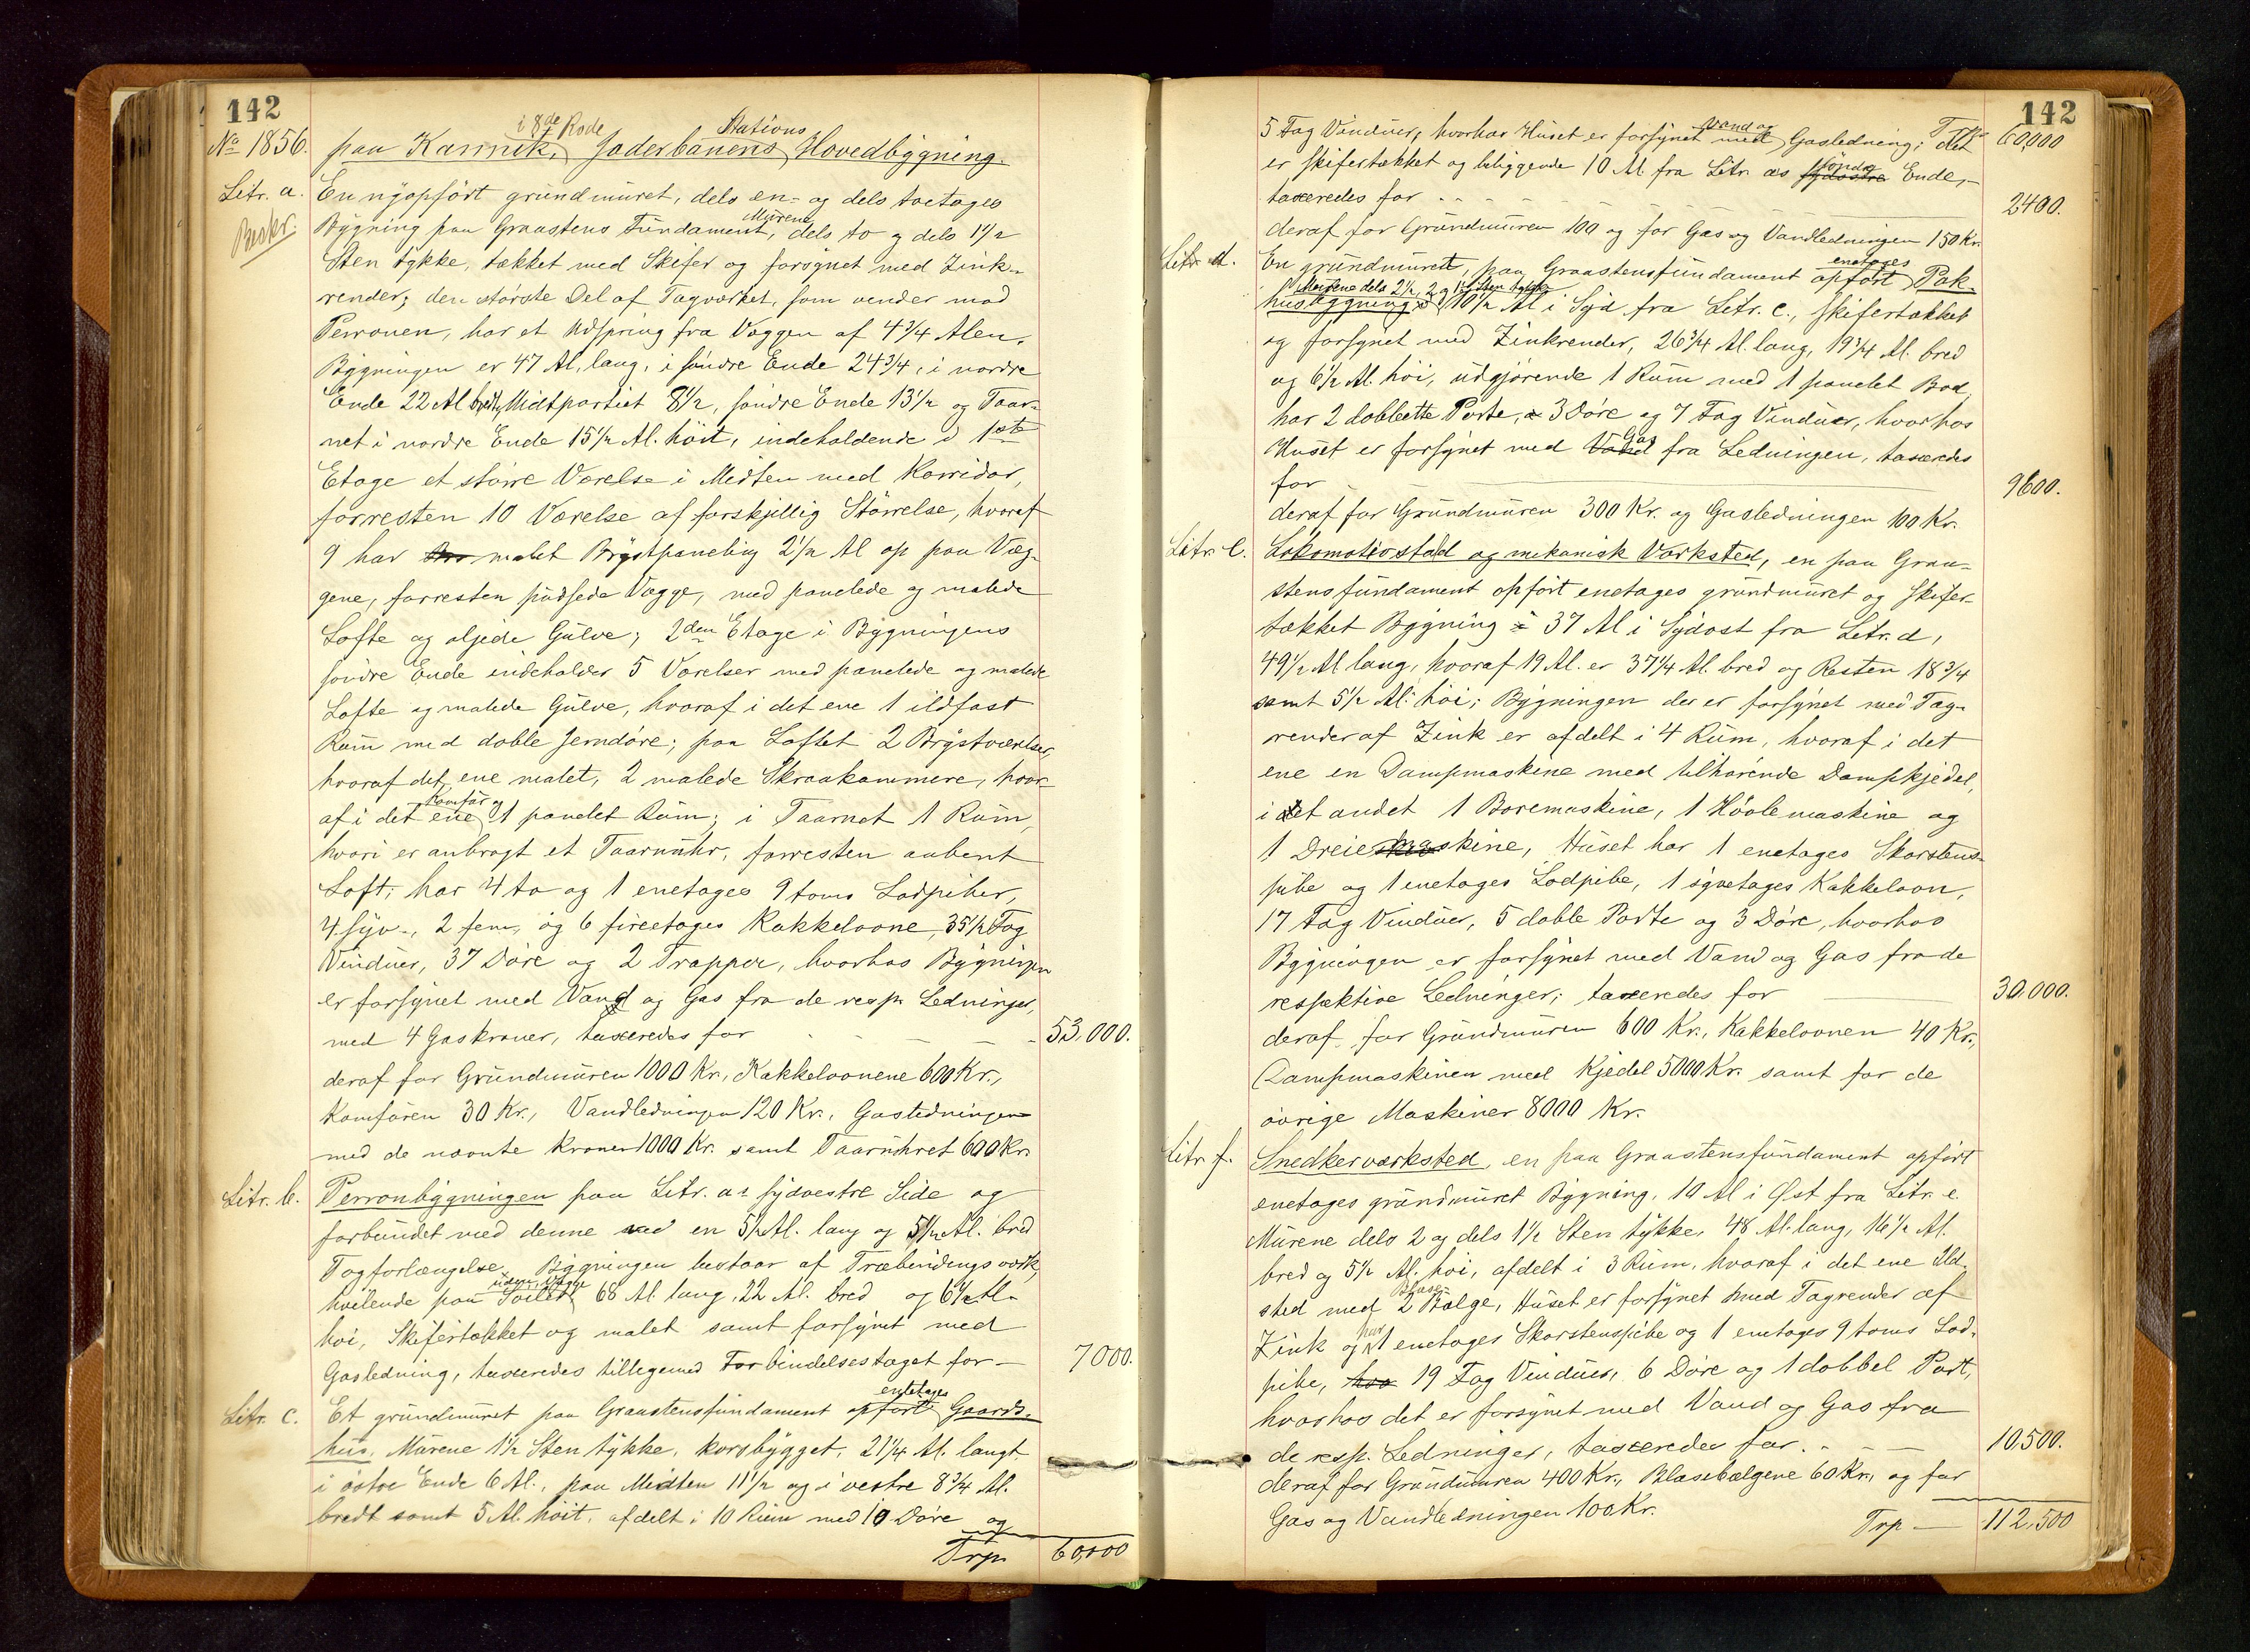 142
No 1856. paa Kannik, i 8de Rode Jæderbanens Stations Hovedbygning.
Litr. a. En nyopført grundmuret, dels en- og dels toetages
Beskr. Bygning paa Graastens Fundament, Murene dels to og dels 1 1/2
Sten tykke, tækket med Skifer og forsynet med Zink-
render; den største Del af Tagværket, som vender mod
Perronen, har et Udspring fra Væggen af 4 3/4 Alen.
Bygningen er 47 Al. lang, i søndre Ende 24 3/4, i nordre
Ende 22 Al bred, Midtpartiet 8 1/2, søndre Ende 13 1/2 og Taar-
net i nordre Ende 15 1/2 Al. høit, indeholdende i 1ste
Etage et større Værelse i Midten med Korridor,
forresten 10 Værelse af forskjellig Størrelse, hvoraf
9 har malet Brystpaneling 2 1/2 Al op paa Væg-
gene, forresten pudsede Vægge, med panelede og malede
Lofte og oljede Gulve; 2den Etage i Bygningens
søndre Ende indeholder 5 Værelser med panelede og malede
Lofte og malede Gulve, hvoraf i det ene 1 ildfast
Rum med doble Jerndøre; paa Loftet 2 Brystværelser,
hvoraf det ene malet, 2 malede Skraakammere, hvor-
af i det ene Komfür og 1 panelet Rum; i Taarnet 1 Rum,
hvori er anbragt et Taarnuhr, forresten aabent
Loft; har 4 to og 1 enetages 9 toms Lodpiber,
4 syv-, 2 fem, og 6 fireetages Kakkelovne, 35 1/2 Fag
Vinduer, 37 Døre og 2 Trapper, hvorhos Bygningen
er forsynet med Vand og Gas fra de resp. Ledninger,
med 4 Gaskroner, taxeredes for - - - 53,000.
deraf for Grundmuren 1000 Kr., Kakkelovnene 600 Kr.,
Komfüren 30 Kr., Vandledningen 120 Kr., Gasledningen
med de nævnte Kroner 1000 Kr. samt Taarnuhret 600 Kr.
Litr. b. Perronbygningen paa Litr. as sydvestre Side og
forbundet med denne ved en 5 1/2 Al. lang og 5 1/2 Al. bred
Tagforlængelse. Bygningen bestaar af Træbindingsverk,
hvilende paa Søiler uden Vægge, 68 Al. lang, 22 Al. bred og 6 1/2 Al.
høi, Skifertækket og malet samt forsynet med
Gasledning, taxeredes tilligemed Forbindelsestaget for — 7000.
Litr. c. Et grundmuret paa Graastensfundament opført enetages Gaards-
hus, Murene 1 1/2 Sten tykke, korsbygget, 21 1/4 Al. langt.
i østre Ende 6 Al., paa Midten 11 1/2 og i vestre 8 3/4 Al.
bredt samt 5 Al. høit, afdelt i 10 Rum med 10 Døre og
Trp. 60,000
142
Trp. 60,000
5 Fag Vinduer, hvorhos Huset er forsynet med Vand og Gasledning; det
er skifertækket og beliggende 10 Al fra Litr. as søndre Ende,
taxeredes for - - - 2400.
deraf for Grundmuren 100 og for Gas og Vandledningen 150 Kr.
Litr. d. En grundmuret, paa Graastensfundament opført enetages Pak-
husbygning, Murene dels 2 1/2, 2 og 1 1/2 Sten tykke, 10 1/2 Al i Syd fra Litr. c., skifertækket
og forsynet med Zinkrender, 26 3/4 Al. lang, 19 3/4 Al. bred
og 6 1/2 Al. høi, udgjørende 1 Rum med 1 panelet Bod,
har 2 dobbelte Porte, 3 Døre og 7 Fag Vinduer, hvorhos
Huset er forsynet med Gas fra Ledningen, taxeredes
for — 9600.
deraf for Grundmuren 300 Kr. og Gasledningen 100 Kr.
Litr. e. Lokomotivstald og mekanisk Værksted, en paa Graa-
stensfundament opført enetages grundmuret og skifer-
tækket Bygning 37 Al i Sydost fra Litr. d,
49 1/2 Al lang, hvoraf 19 Al. er 37 1/4 Al. bred og Resten 18 3/4
samt 5 1/2 Al. høi; Bygningen der er forsynet med Tag-
render af Zink er afdelt i 4 Rum, hvoraf i det
ene en Dampmaskine med tilhørende Dampkjedel,
i et andet 1 Boremaskine, 1 Høvlemaskine og
1 Dreiemaskine, Huset har 1 enetages Skorstens-
pibe og 1 enetages Lodpibe, 1 syvetages Kakkelovn,
17 Fag Vinduer, 5 doble Porte og 3 Døre, hvorhos
Bygningen er forsynet med Vand og Gas fra de
respektive Ledninger; taxeredes for — 30.000.
deraf for Grundmuren 600 Kr., Kakkelovnen 40 Kr.,
Dampmaskinen med Kjedel 5000 Kr. samt for de
øvrige Maskiner 8000 Kr.
Litr. f. Snedkerværksted, en paa Graastensfundament opført
enetages grundmuret Bygning, 10 Al i Øst fra Litr. e.
Murene dels 2 og dels 1 1/2 Sten tykke, 48 Al. lang, 16 1/2 Al.
bred og 5 1/2 Al. høi, afdelt i 3 Rum, hvoraf i det ene Ild-
sted med 2 Blasebælge, Huset er forsynet med Tagrender af
Zink og har 1 enetages Skorstenspibe og 1 enetages 9 toms Lod-
pibe, 19 Fag Vinduer, 6 Døre og 1 dobbel Port,
hvorhos det er forsynet med Vand og Gas fra
de resp. Ledninger, taxeredes for - - — 10,500.
deraf for Grundmuren 400 Kr., Blæsebælgene 60 Kr., og for
Gas og Vandledningen 100 Kr.
Trp — 112,500